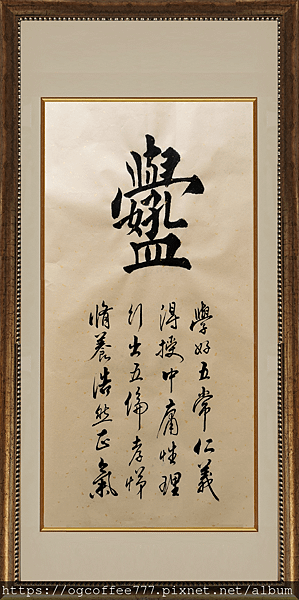 學好孔孟
學好五常仁義
得授中庸性理
行出五倫孝悌
脩養浩然正氣
https://ogcoffee777.pixnet.net/album